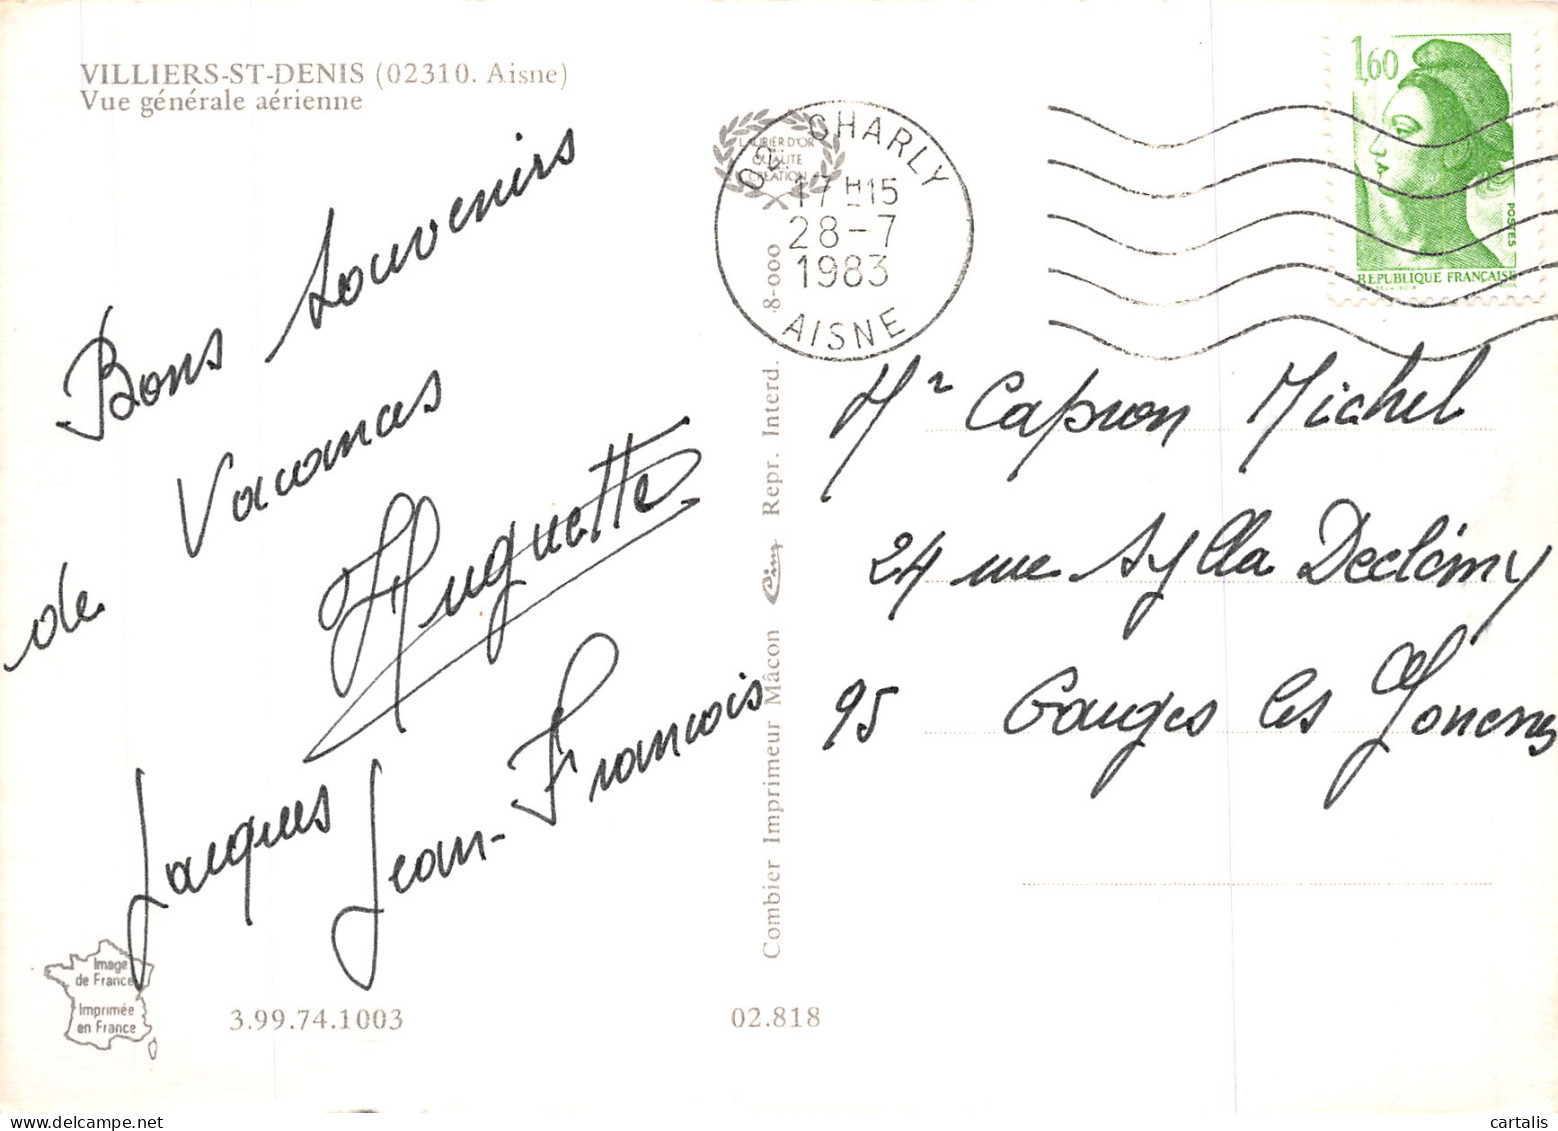 VILLIERS-ST-DENIS (02310. Aisne)
Vue générale aérienne
Bons souvenirs
de Vacances
Huguette
Jacques Jean-Francois
Image
de France
Imprimée
en France
3.99.74.1003
02.818
Combier Imprimeur Mâcon Cim Repr. Interd. 8-000
LAURIER D'OR
QUALITE
CREATION
02 CHARLY
17 H 15
28-7
1983
AISNE
1,60
POSTES
REPUBLIQUE FRANÇAISE
Mr Capron Michel
24 rue Sylla Declémy
95 Garges les Gonesses
cartalis